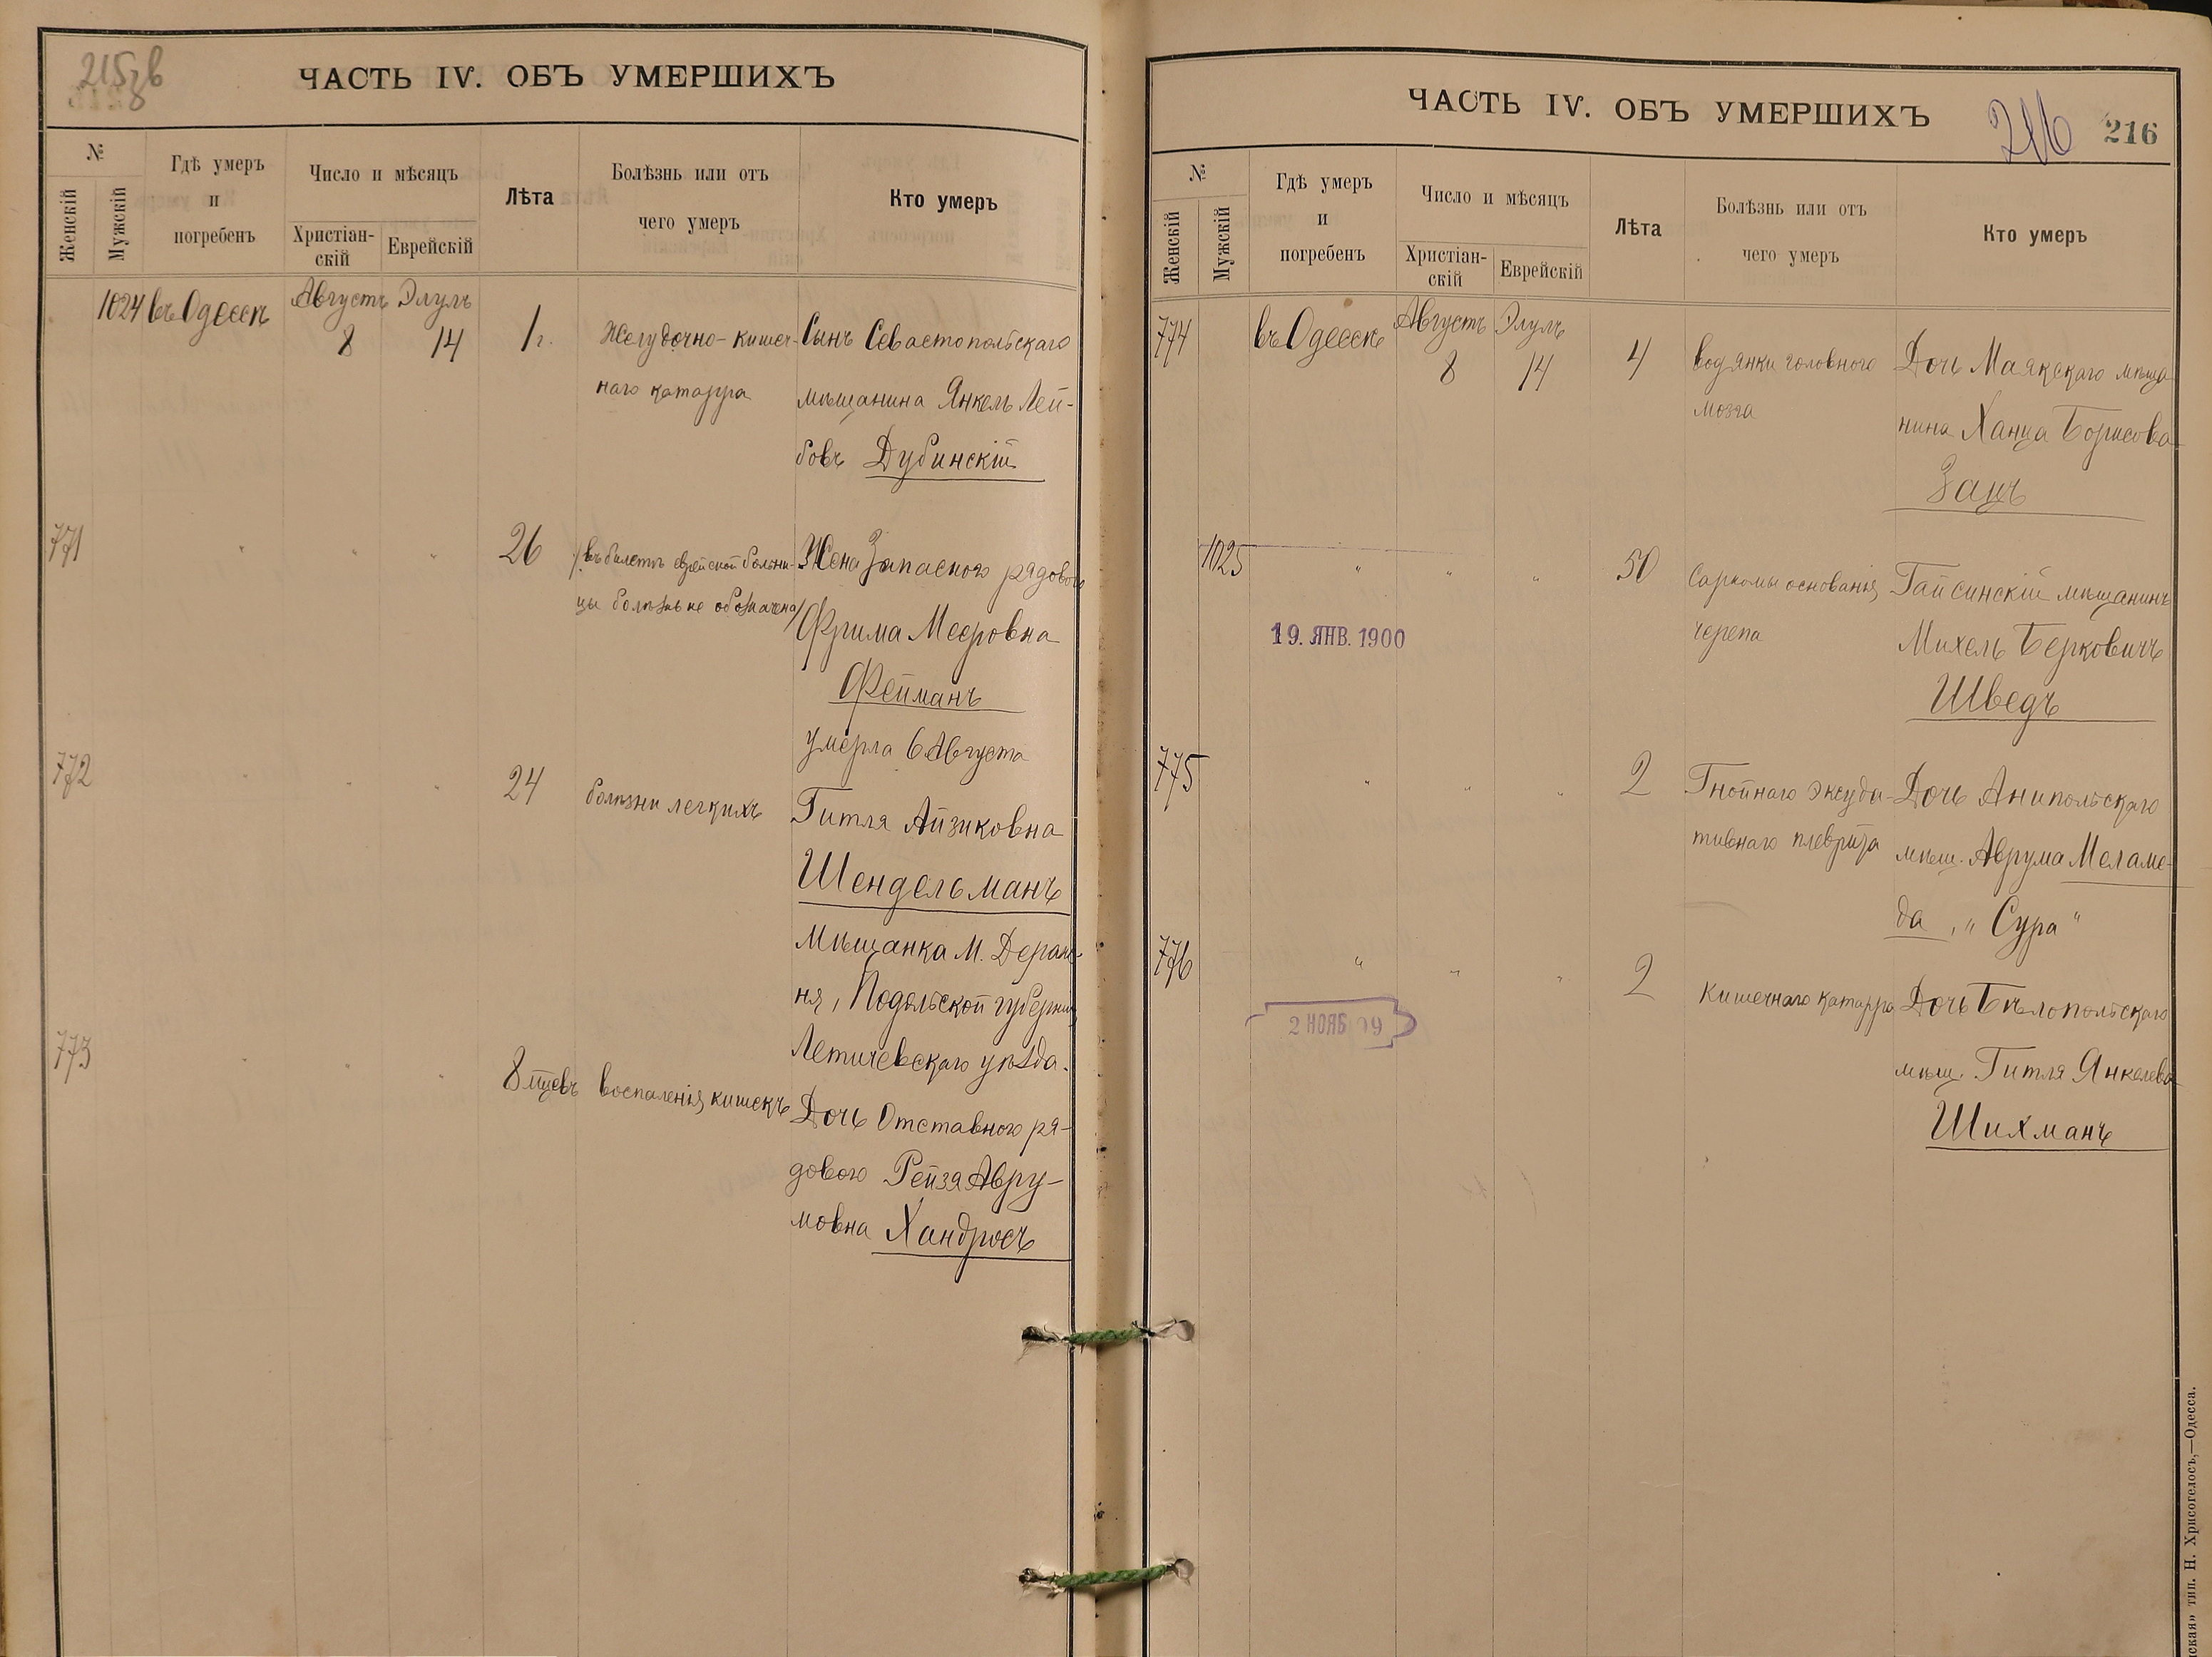 215 зв
ЧАСТЬ IV. ОБЪ УМЕРШИХЪ
№
Женскій
Мужскій
Гдѣ умеръ
и
погребенъ
Число и мѣсяцъ
Христіан-
скій
Еврейскій
Лѣта
Болѣзнь или отъ
чего умеръ
Кто умеръ
1024 въ Одессѣ Августъ 8 Элулъ 14 1 г.
Желудочно-кишеч-
наго катарра
Сынъ Севастопольскаго
мѣщанина Янкель Лей-
бовъ Дубинскій
771 " " " 26
/въ билетѣ еврейской больни-
цы болѣзнь не обозначена/
Жена Запасного рядового
Фрима Меєровна
Фейманъ
умерла 6 Августа
772 " " " 24
болѣзни легкихъ
Гитля Айзиковна
Шендельманъ
Мѣщанка М. Дераж-
ня, Подольской губерніи
Летичевскаго уѣзда.
773 " " " 8 мцевъ
воспаленія кишекъ
Дочь Отставного ря-
дового Рейзя Авру-
мовна Хандросъ
ЧАСТЬ IV. ОБЪ УМЕРШИХЪ
216
216
№
Женскій
Мужскій
Гдѣ умеръ
и
погребенъ
Число и мѣсяцъ
Христіан-
скій
Еврейскій
Лѣта
Болѣзнь или отъ
чего умеръ
Кто умеръ
774 въ Одессѣ Августъ 8 Элулъ 14 4
водянки головного
мозга
Дочь Маякскаго мѣща
нина Ханца Борисова
Зацъ
1025 " " " 50
Саркомы основанія
черепа
Гайсинскій мѣщанинъ
Михель Берковичъ
Шведъ
19. ЯНВ. 1900
775 " " " 2
Гнойнаго эксуда-
тивнаго плеврита
Дочь Анипольскаго
мѣщ. Аврума Меламе-
да, „Сура"
776 " " " 2
Кишечнаго катарра
Дочь Бѣлопольскаго
мѣщ. Гитля Янкелева
Шихманъ
2 НОЯБ 99
ская» тип. Н. Хрисогелосъ,—Одесса.